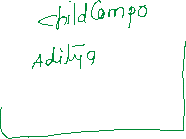 childCompo
Aditya